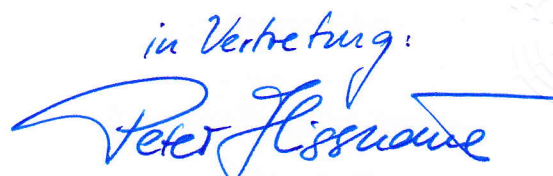 in Vertretung:
Peter Hissnauer